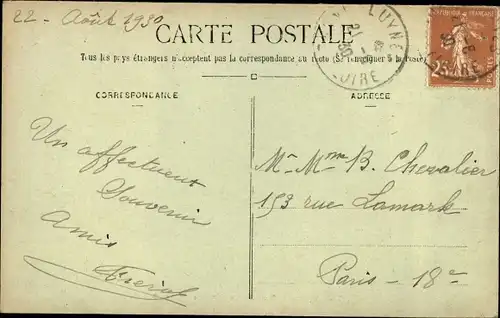 22 - Août 1930
CARTE POSTALE
Tous les pays étrangers n'acceptent pas la correspondance au recto (Se renseigner à la Poste)
CORRESPONDANCE
ADRESSE
LUYNES
LOIRE
25c
Un affectueux
Souvenir
Amis
Mr Mme B. Chevalier
153 rue Lamark
Paris - 18e